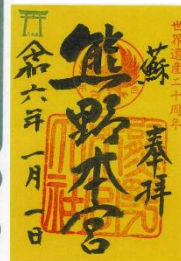 世界遺産二十周年
奉拝
蘇
熊野本宮
令六年一月一日